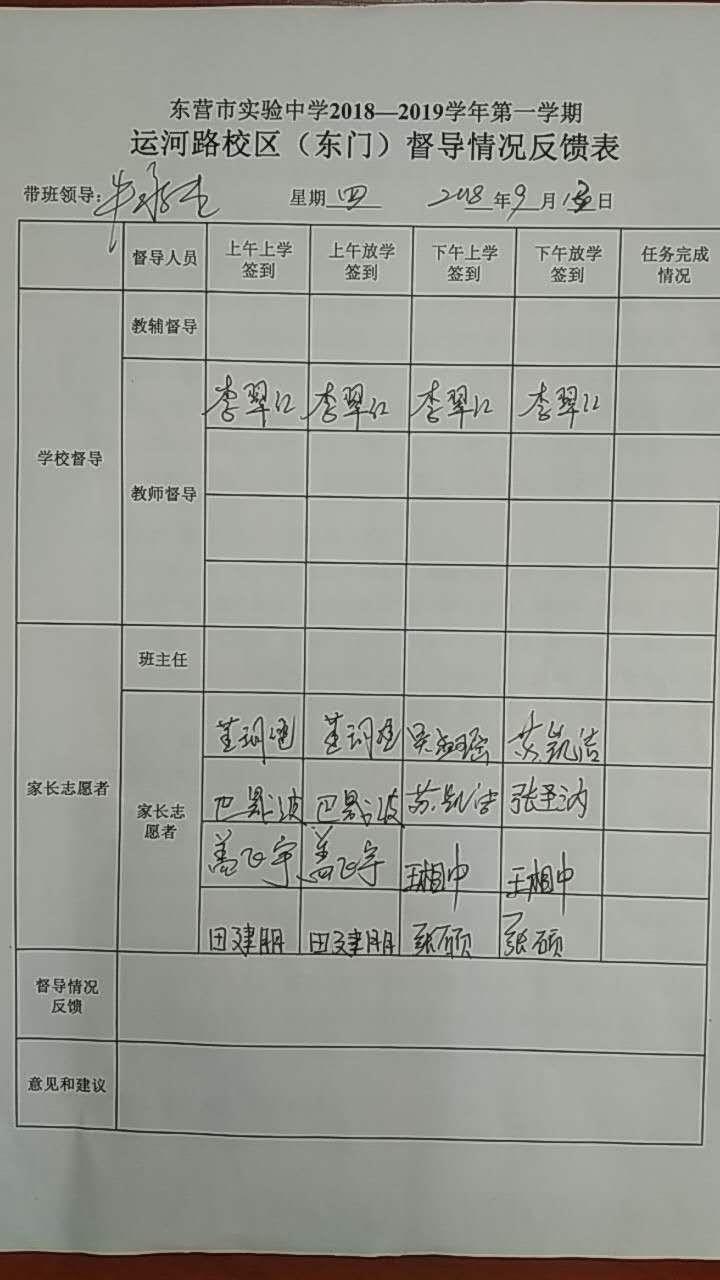 东营市实验中学2018—2019学年第一学期
运河路校区（东门）督导情况反馈表
带班领导： 星期 四 2018 年 9 月 日
督导人员 上午上学签到 上午放学签到 下午上学签到 下午放学签到 任务完成情况
学校督导
教辅督导
教师督导
李翠红 李翠红 李翠红 李翠红
家长志愿者
班主任
家长志愿者
苏凯洁
苏凯洁
盖飞宇 盖飞宇 王相中 王相中
田建朋 田建朋 张硕 张硕
督导情况反馈
意见和建议